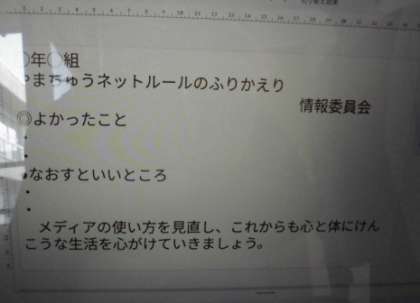 〇年〇組
やまちゅうネットルールのふりかえり
情報委員会
◎よかったこと
・
・
●なおすといいところ
・
・
メディアの使い方を見直し、これからも心と体にけん
こうな生活を心がけていきましょう。